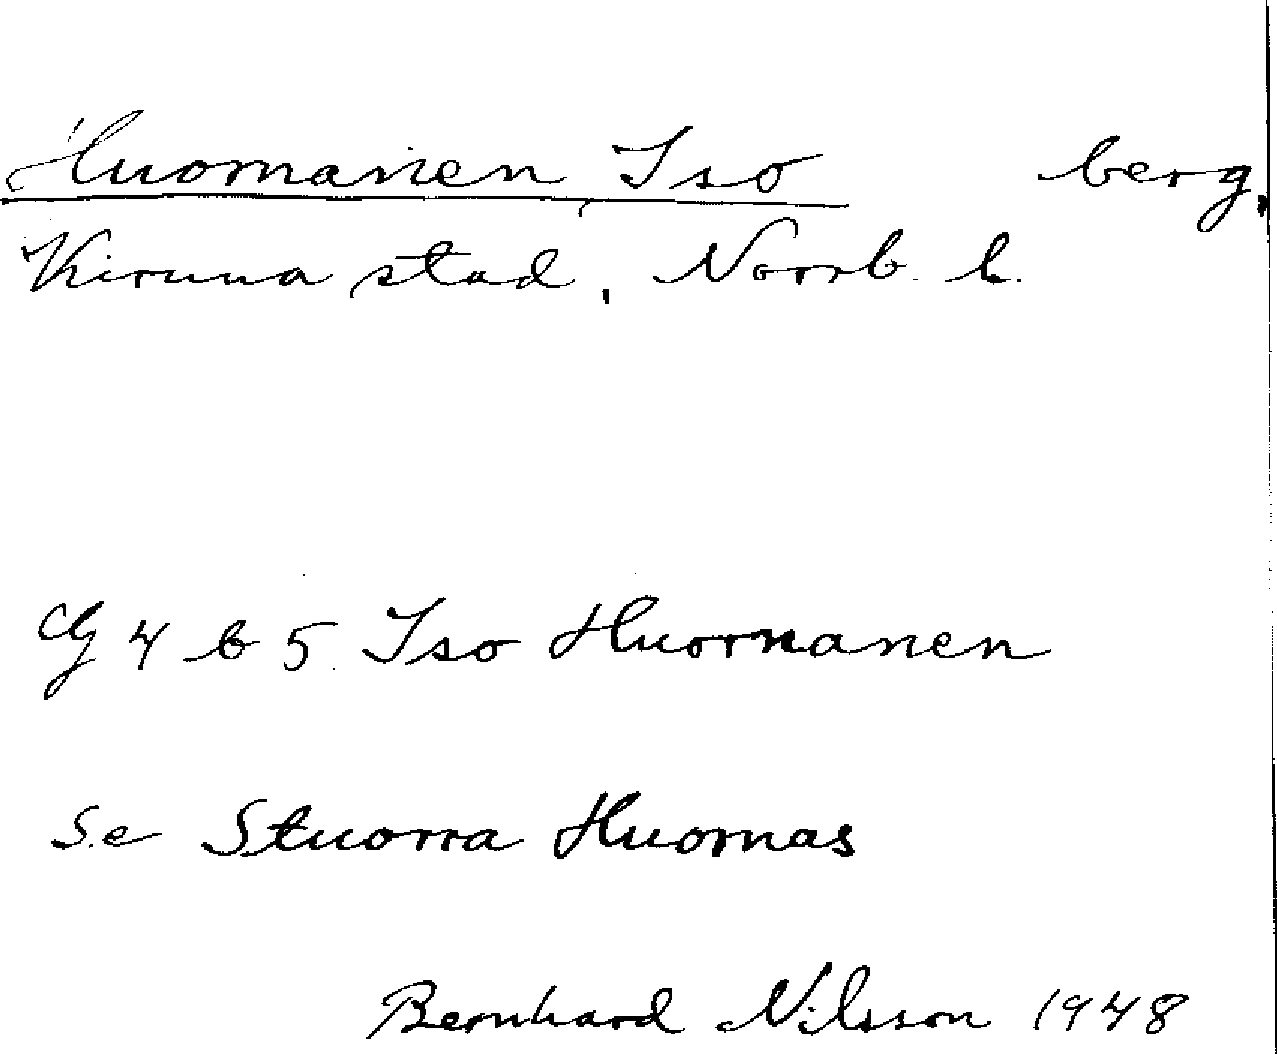 Huornanen Iso berg,
Kiruna stad, Norrb. l.
Cg 4 b 5. Iso Huornanen
Se Stuorra Huornas
Bernhard Nilsson 1948